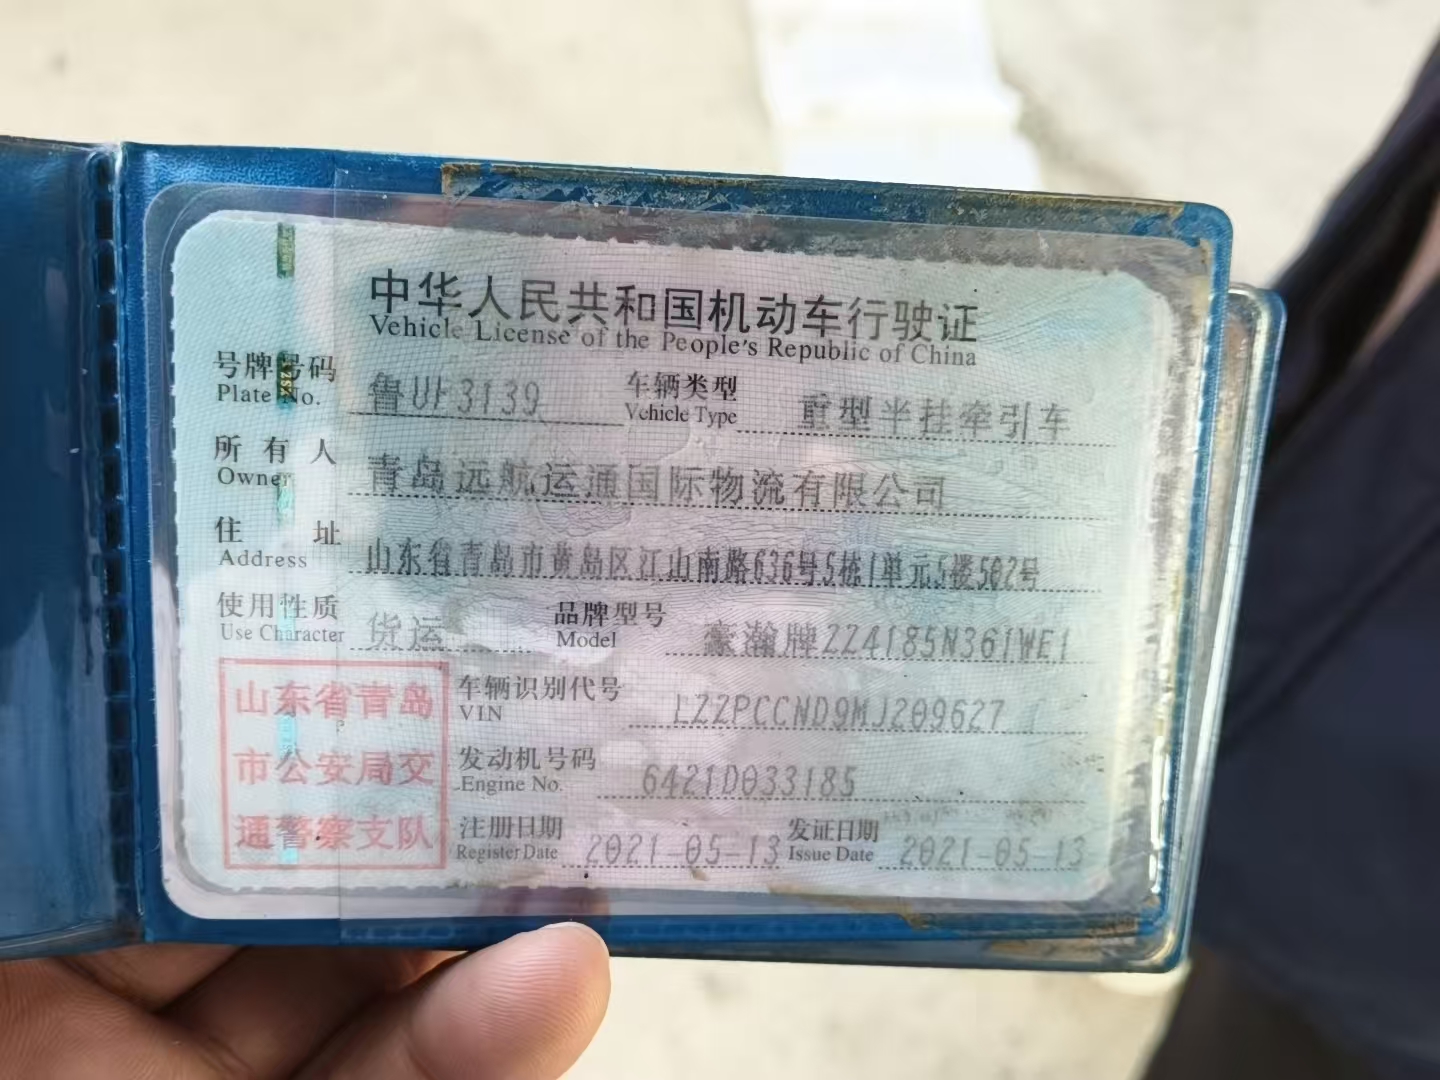 中华人民共和国机动车行驶证
Vehicle License of the People's Republic of China
号牌号码 鲁UF3139 车辆类型 重型半挂牵引车
Plate No. Vehicle Type
所有人 青岛远航运通国际物流有限公司
Owner
住址 山东省青岛市黄岛区江山南路636号5栋1单元5楼502号
Address
使用性质 货运 品牌型号 豪瀚牌ZZ4185N361WE1
Use Character Model
山东省青岛
市公安局交
通警察支队
车辆识别代号 LZZPCCND9MJ209627
VIN
发动机号码 6421D033185
Engine No.
注册日期 2021-05-13 发证日期 2021-05-13
Register Date Issue Date